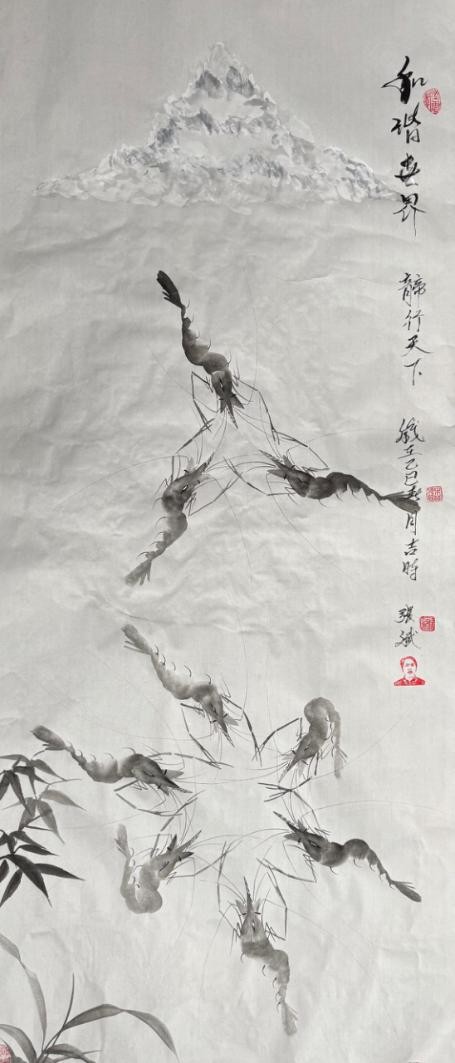 和谐世界
行天下
歲在乙巳春月吉时
張斌